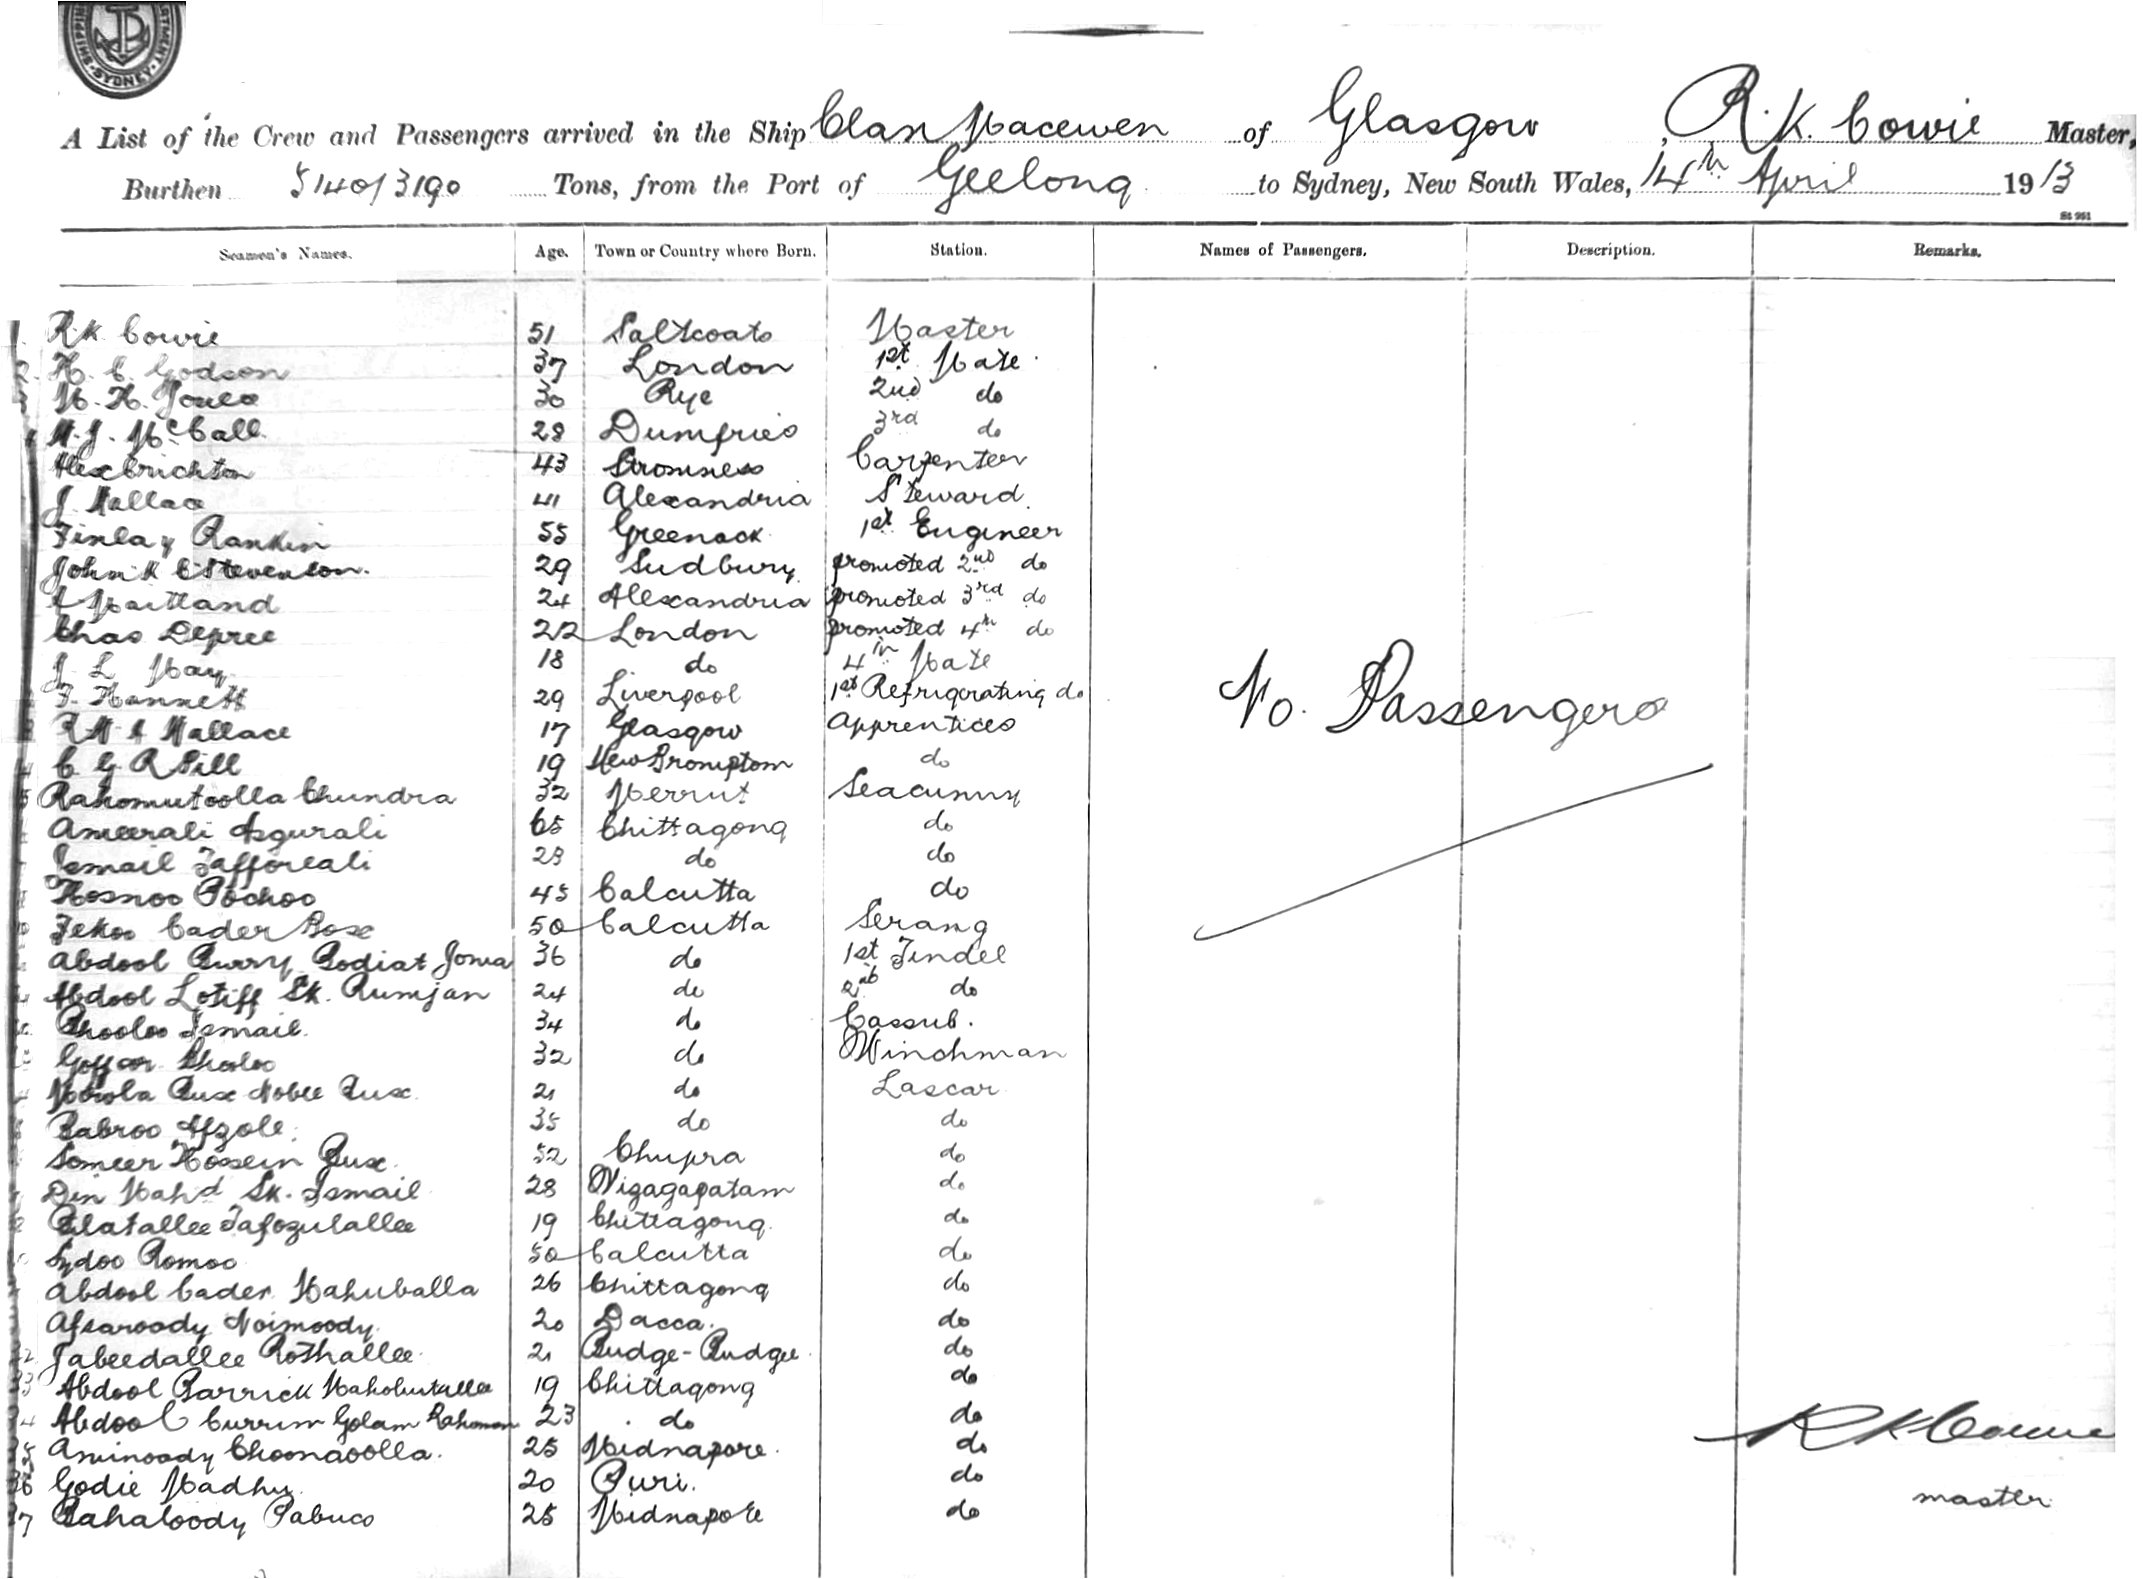 SHIPPING SYDNEY
A List of the Crew and Passengers arrived in the Ship Clan Macewen of Glasgow, R. K. Cowie Master,
Burthen 5140/3190 Tons, from the Port of Geelong to Sydney, New South Wales, 14th April 1913
St 951
Seamen's Names. Age. Town or Country where Born. Station. Names of Passengers. Description. Remarks.
1. R.K Cowie 51 Saltcoats Master
2. H. C. Godson 37 London 1st Mate
3 M. H. Jones 30 Rye 2nd do
W. J. McCall 28 Dumfries 3rd do
Alex Crichton 43 Stromness Carpenter
J. Wallace 41 Alexandria Steward
Finlay Rankin 55 Greenock 1st Engineer
John K C Stevenson. 29 Sudbury promoted 2nd do
Maitland 24 Alexandria promoted 3rd do
Chas Depree 22 London promoted 4th do
J. L May 18 do 4th Mate
F. Hannett 29 Liverpool 1st Refrigerating do
R W A Wallace 17 Glasgow Apprentices
C. G. R Pill 19 New Brompton do
Rahomutoolla Chundra 32 Merrut Seacunny
Ameerali Asgurali 65 Chittagong do
Ismail Jafforeali 28 do do
Hosnoo Pochoo 45 Calcutta do
No. Passengers
Fekoo Cader Box 50 Calcutta Serang
Abdool Burry Bodiat Joma 36 do 1st Tindel
Abdool Lotiff Sk. Rumjan 24 do 2nd do
Phooloo Ismail. 34 do Cassub.
Goffar Pholoo 32 do Winchman
Mowla Bux Noble Bux. 21 do Lascar
Babroo Afzole. 35 do do
Someer Hossein Bux. 52 Chupra do
Din Mahd Sk. Ismail 28 Vizagapatam do
Elatallee Tafozulallee 19 Chittagong. do
Sydoo Romoo 50 Calcutta do
Abdool Cader Mahuballa 26 Chittagong do
Afsaroody Noimoody. 20 Dacca. do
32 Jabeedallee Rothallee. 21 Budge-Budge do
33 Abdool Barrick Mahobutallee 19 Chittagong do
34 Abdool Currim Golam Rahoman 23 do do
R K Cowie
35 Aminoody Choonaoolla. 25 Midnapore. do
36 Godie Madhu 20 Puri. do
master
37 Bahaloody Pabuco 25 Midnapore do